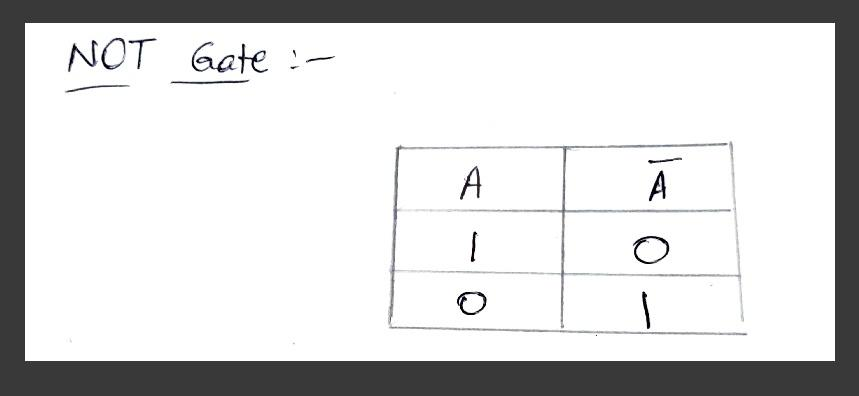 NOT Gate :-
A Ā
1 0
0 1